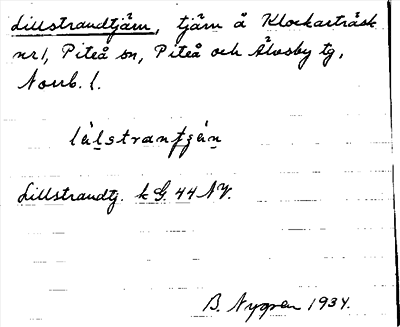 Lillstrandtjärn, tjärn å Klockarträsk
nr 1, Piteå sn, Piteå och Älvsby tg,
Norrb. l.
lìlstrantjän
Lillstrandtj. k G. 44 NV.
B. Nygren 1934.